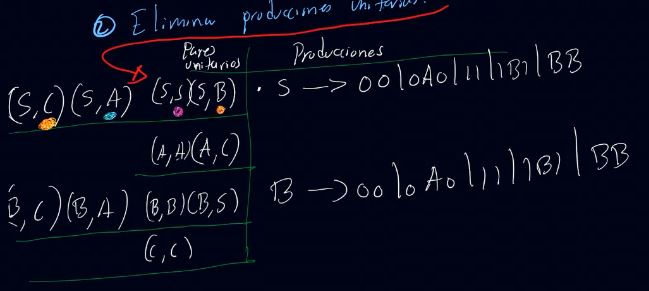 ② Eliminar producciones unitarias.
Pares unitarios Producciones
(S,C) (S,A) (S,S)(S,B) · S → 00|0A0|11|1B1|BB
(A,A)(A,C)
B,C)(B,A) (B,B)(B,S) B → 00|0A0|11|1B1|BB
(C,C)